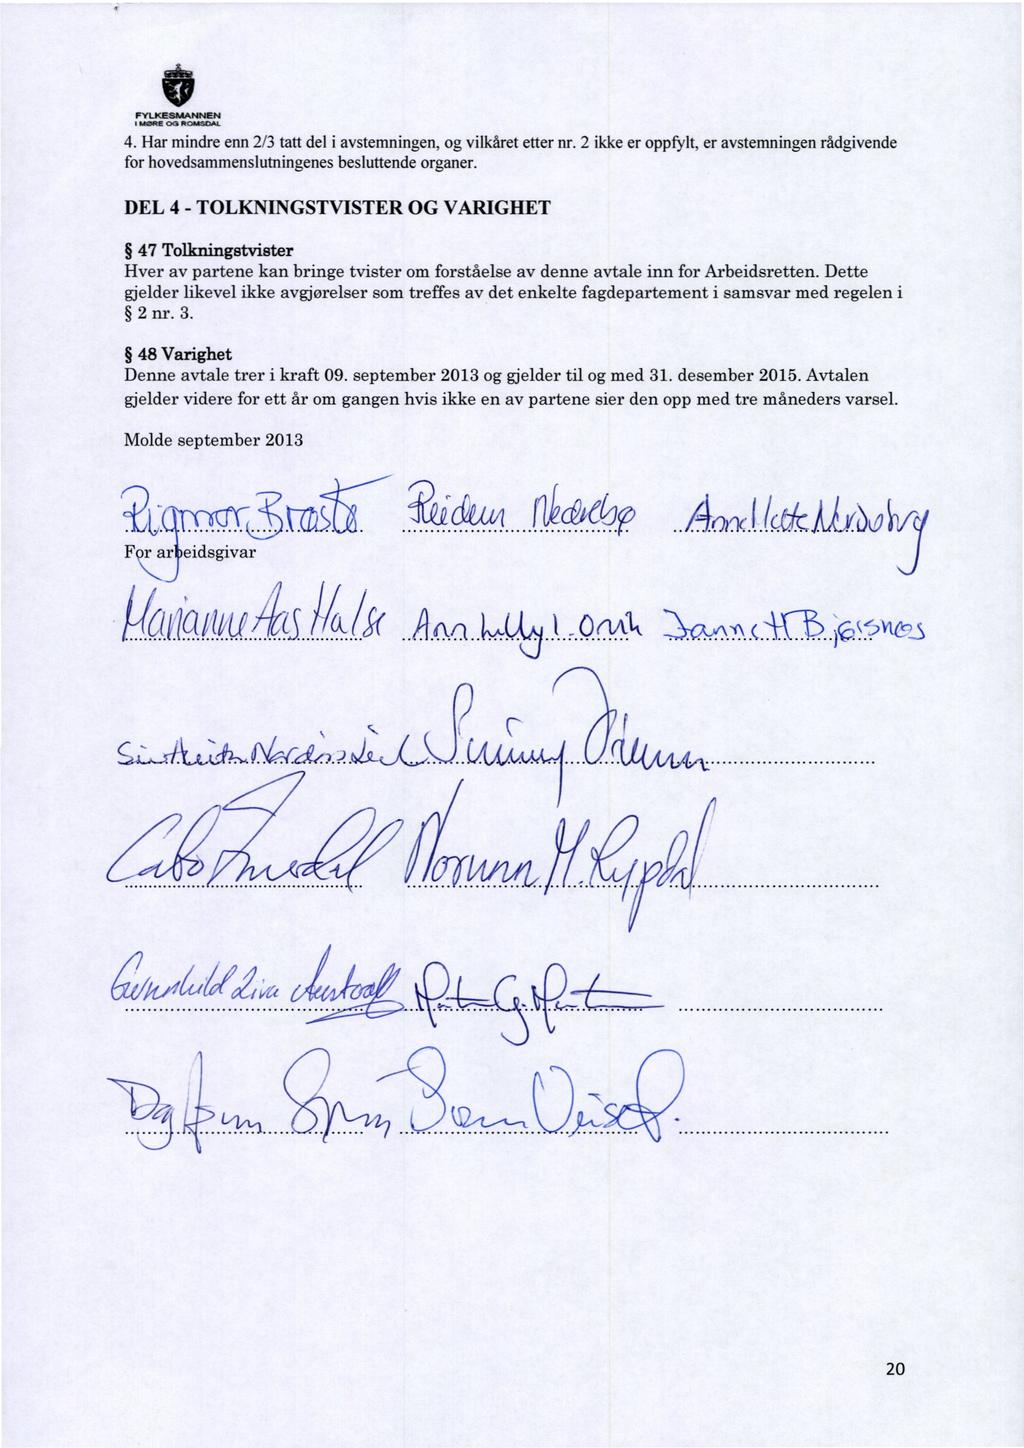 FYLKESMANNEN
I MØRE OG ROMSDAL
4. Har mindre enn 2/3 tatt del i avstemningen, og vilkåret etter nr. 2 ikke er oppfylt, er avstemningen rådgivende
for hovedsammenslutningenes besluttende organer.
DEL 4 - TOLKNINGSTVISTER OG VARIGHET
§ 47 Tolkningstvister
Hver av partene kan bringe tvister om forståelse av denne avtale inn for Arbeidsretten. Dette
gjelder likevel ikke avgjørelser som treffes av det enkelte fagdepartement i samsvar med regelen i
§ 2 nr. 3.
§ 48 Varighet
Denne avtale trer i kraft 09. september 2013 og gjelder til og med 31. desember 2015. Avtalen
gjelder videre for ett år om gangen hvis ikke en av partene sier den opp med tre måneders varsel.
Molde september 2013
Rigmor Brøste Reidun
For arbeidsgivar
Marianne Aas Halse Ann Lilly Janne H
Norunn M. Rypdal
Gunnhild Liva
20